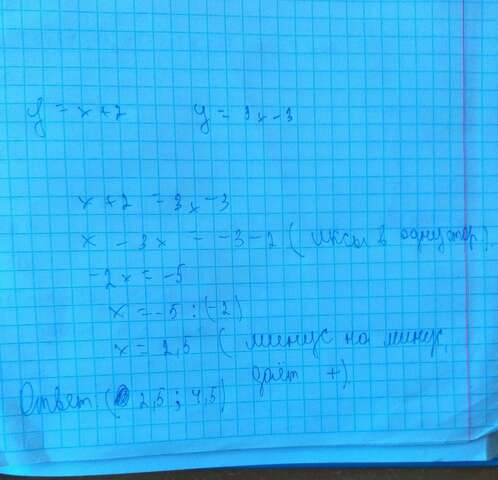 y = x+2 y = 3x-3
x+2 = 3x-3
x - 3x = -3-2 (иксы в одну стор)
-2x = -5
x = -5 : (-2)
x = 2,5 (минус на минус
даёт +)
Ответ: (2,5 ; 4,5)